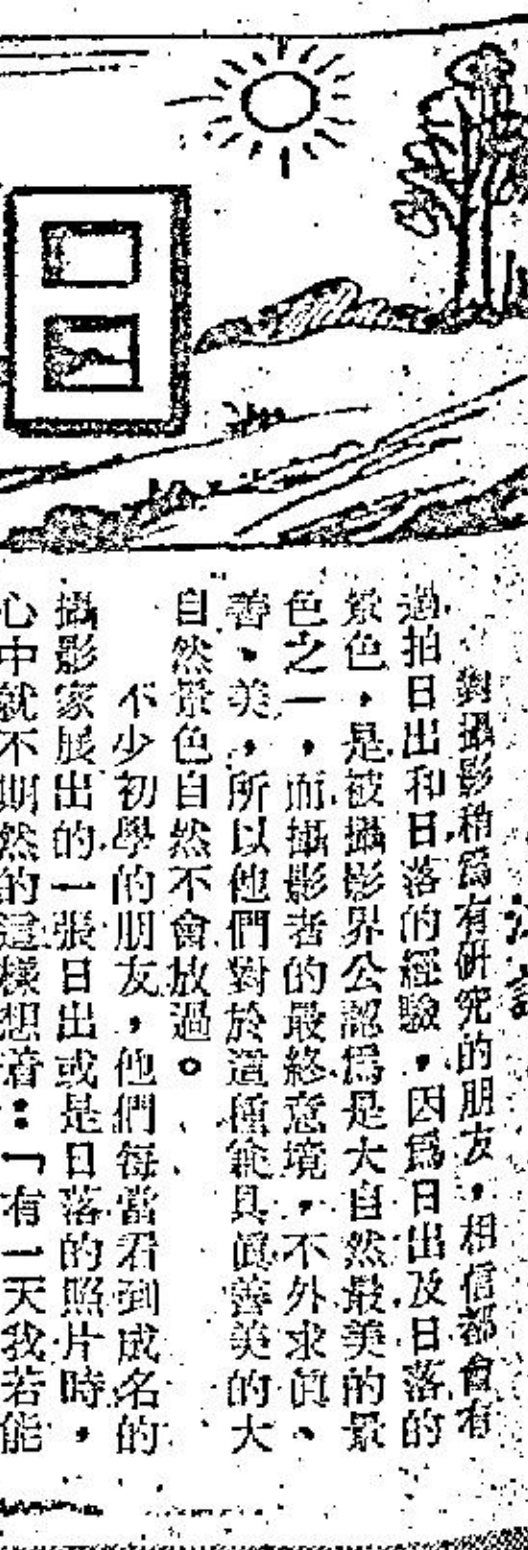 日
對攝影稍爲有研究的朋友，相信都會有
過拍日出和日落的經驗，因爲日出及日落的
景色，是被攝影界公認爲是大自然最美的景
色之一，而攝影者的最終意境，不外求眞、
善、美，所以他們對於這種兼具眞善美的大
自然景色自然不會放過。
不少初學的朋友，他們每當看到成名的
攝影家展出的一張日出或是日落的照片時，
心中就不期然的這樣想着：「有一天我若能